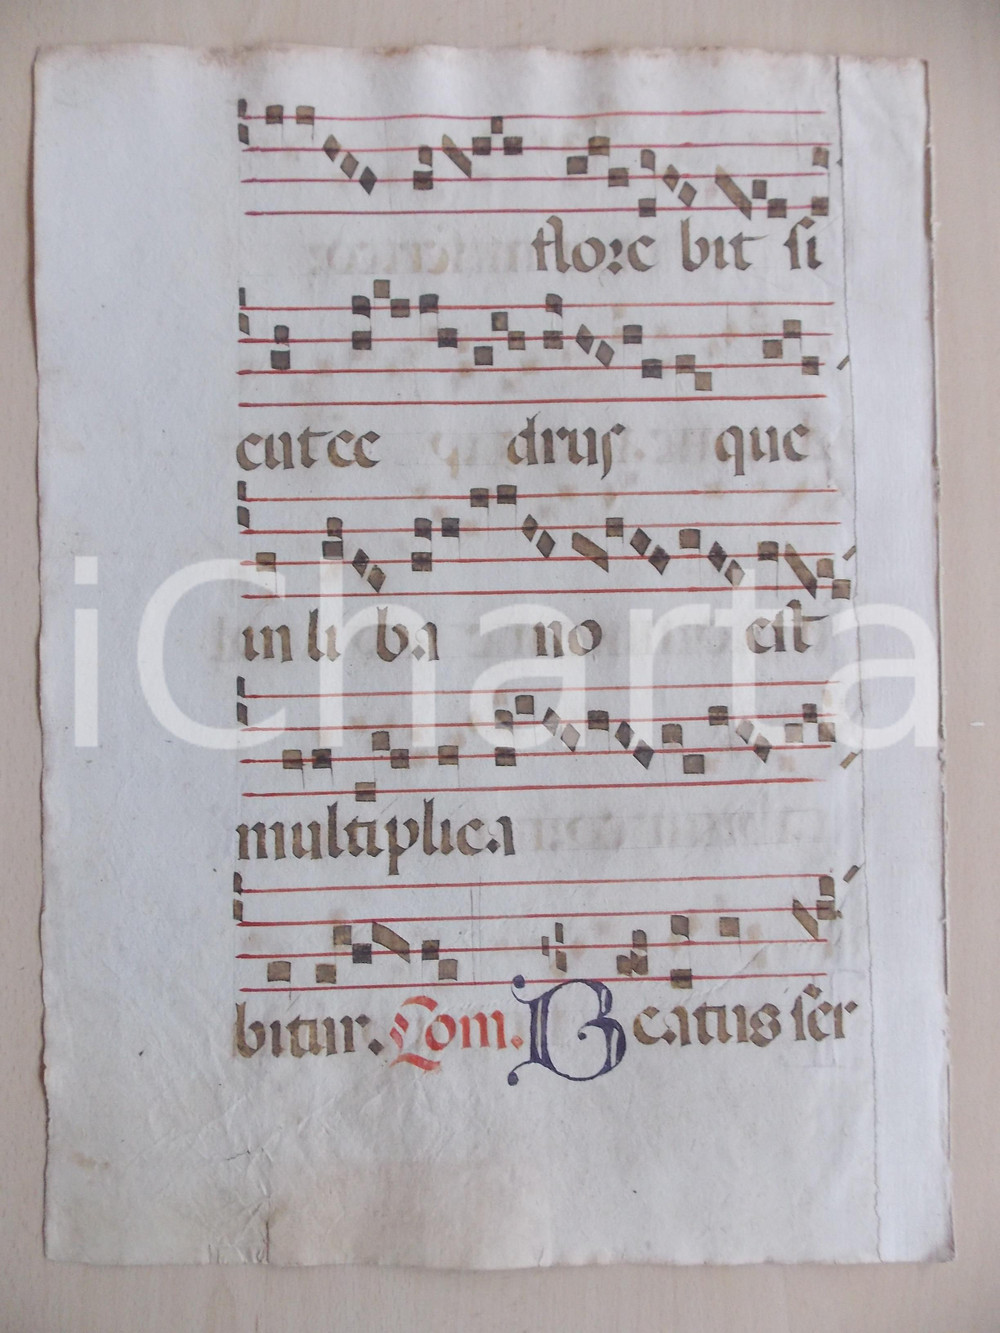 flore bit si
cut ce drus que
in li ba no est
multiplica
bitur. Com. Beatus ser
iCharta